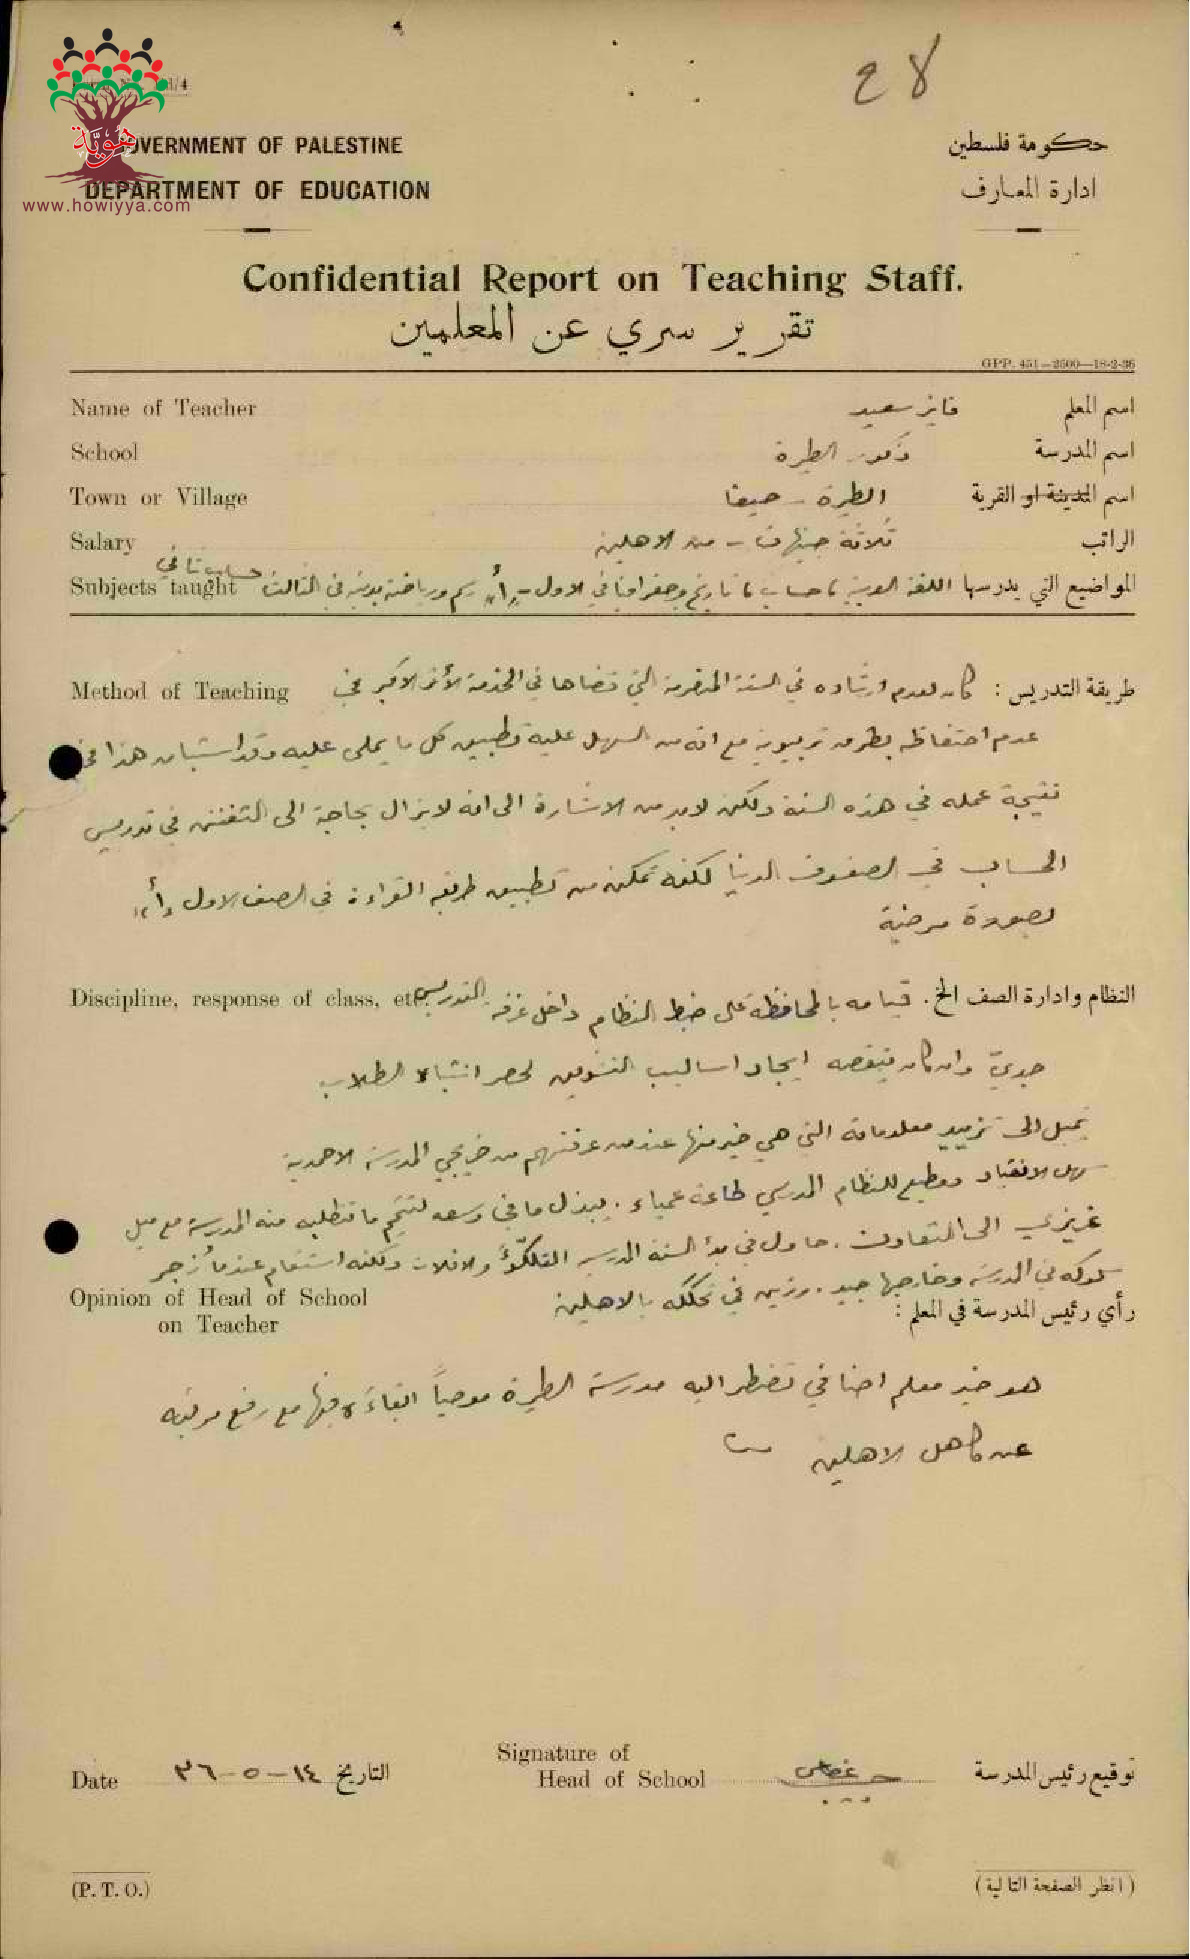 28
GOVERNMENT OF PALESTINE
حكومة فلسطين
هوية
DEPARTMENT OF EDUCATION
ادارة المعارف
www.howiyya.com
Confidential Report on Teaching Staff.
تقرير سري عن المعلمين
GPP. 451—2500—18-2-36
Name of Teacher فايز سعيد اسم المعلم
School ذكور الطيرة اسم المدرسة
Town or Village الطيرة - حيفا اسم المدينة او القرية
Salary ثلاثة جنيهات - من الاهلين الراتب
حساب ثاني
Subjects taught المواضيع التي يدرسها اللغة العربية ، حساب ، تاريخ وجغرافيا في الاول - "أ" رسم ورياضة بدنية في الثالث
Method of Teaching طريقة التدريس : كان لعدم ارشاده في السنة المنصرمة التي قضاها في الخدمة الأثر الاكبر في
عدم احتفاظه بطرق تربيوية مع انه من السهل عليه تطبيق كل ما يملى عليه وقد استبان هذا في
نتيجة عمله في هذه السنة ولكن لابد من الاشارة الى انه لا يزال بحاجة الى التفنن في تدريس
الحساب في الصفوف الدنيا لكنه تمكن من تطبيق طريقة القراءة في الصف الاول "أ"
بصورة مرضية
Discipline, response of class, etc. النظام وادارة الصف الخ . قيامه بالمحافظة على ضبط النظام داخل غرفة التدريس
جدي وان كان ينقصه ايجاد اساليب التشويق لحصر انتباه الطلاب
يميل الى تزييد معلوماته التي هي خير منها عند من عرفتهم من خريجي المدرسة الاحمدية
سهل الانقياد ومطيع للنظام المدرسي طاعة عمياء . يبذل ما في وسعه لتتميم ما تتطلبه منه المدرسة مع ميل
غريزي الى التعاون . حاول في بدأ السنة المدرسية التلكؤ والافلات ولكنه استقام عندما زجر
سلوكه في المدرسة وخارجها جيد . رزين في تحككه بالاهلين
Opinion of Head of School
on Teacher
رأي رئيس المدرسة في المعلم :
هو خير معلم اضافي تضطر اليه مدرسة الطيرة موصياً ابقاءه فيها مع رفع مرتبه
عن كاهل الاهلين
Signature of
Head of School
توقيع رئيس المدرسة
Date ١٤-٥-٣٦ التاريخ
(P. T. O.)
(انظر الصفحة التالية)